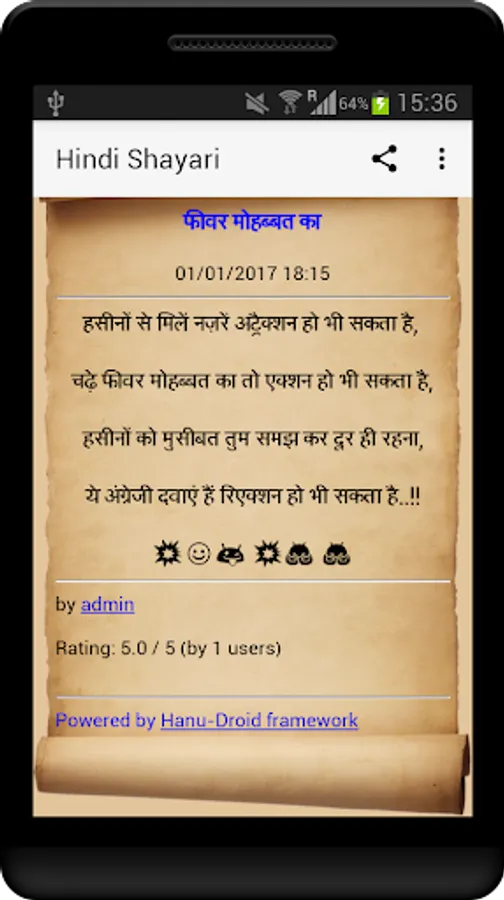 R 64% 15:36
Hindi Shayari
फीवर मोहब्बत का
01/01/2017 18:15
हसीनों से मिलें नज़रें अट्रैक्शन हो भी सकता है,
चढ़े फीवर मोहब्बत का तो एक्शन हो भी सकता है,
हसीनों को मुसीबत तुम समझ कर दूर ही रहना,
ये अंग्रेजी दवाएं हैं रिएक्शन हो भी सकता है..!!
by admin
Rating: 5.0 / 5 (by 1 users)
Powered by Hanu-Droid framework